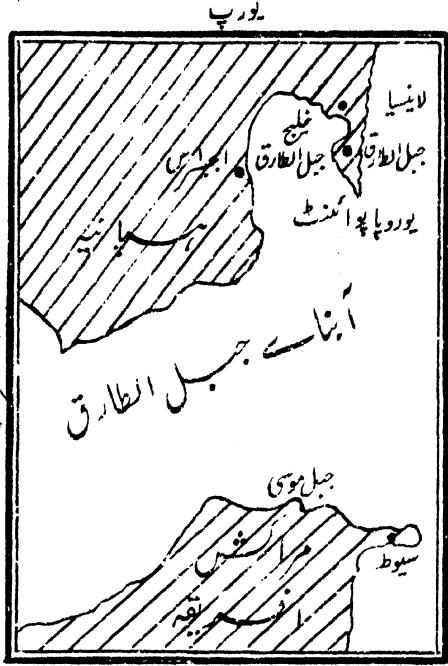 یورپ
لاینسیا
خلیج
جبل الطارق
جبل الطارق
الجسراس
یوروپا پوائنٹ
ہسپانیہ
آبنائے جبل الطارق
جبل موسیٰ
سیوطہ
مراکش
افریقہ